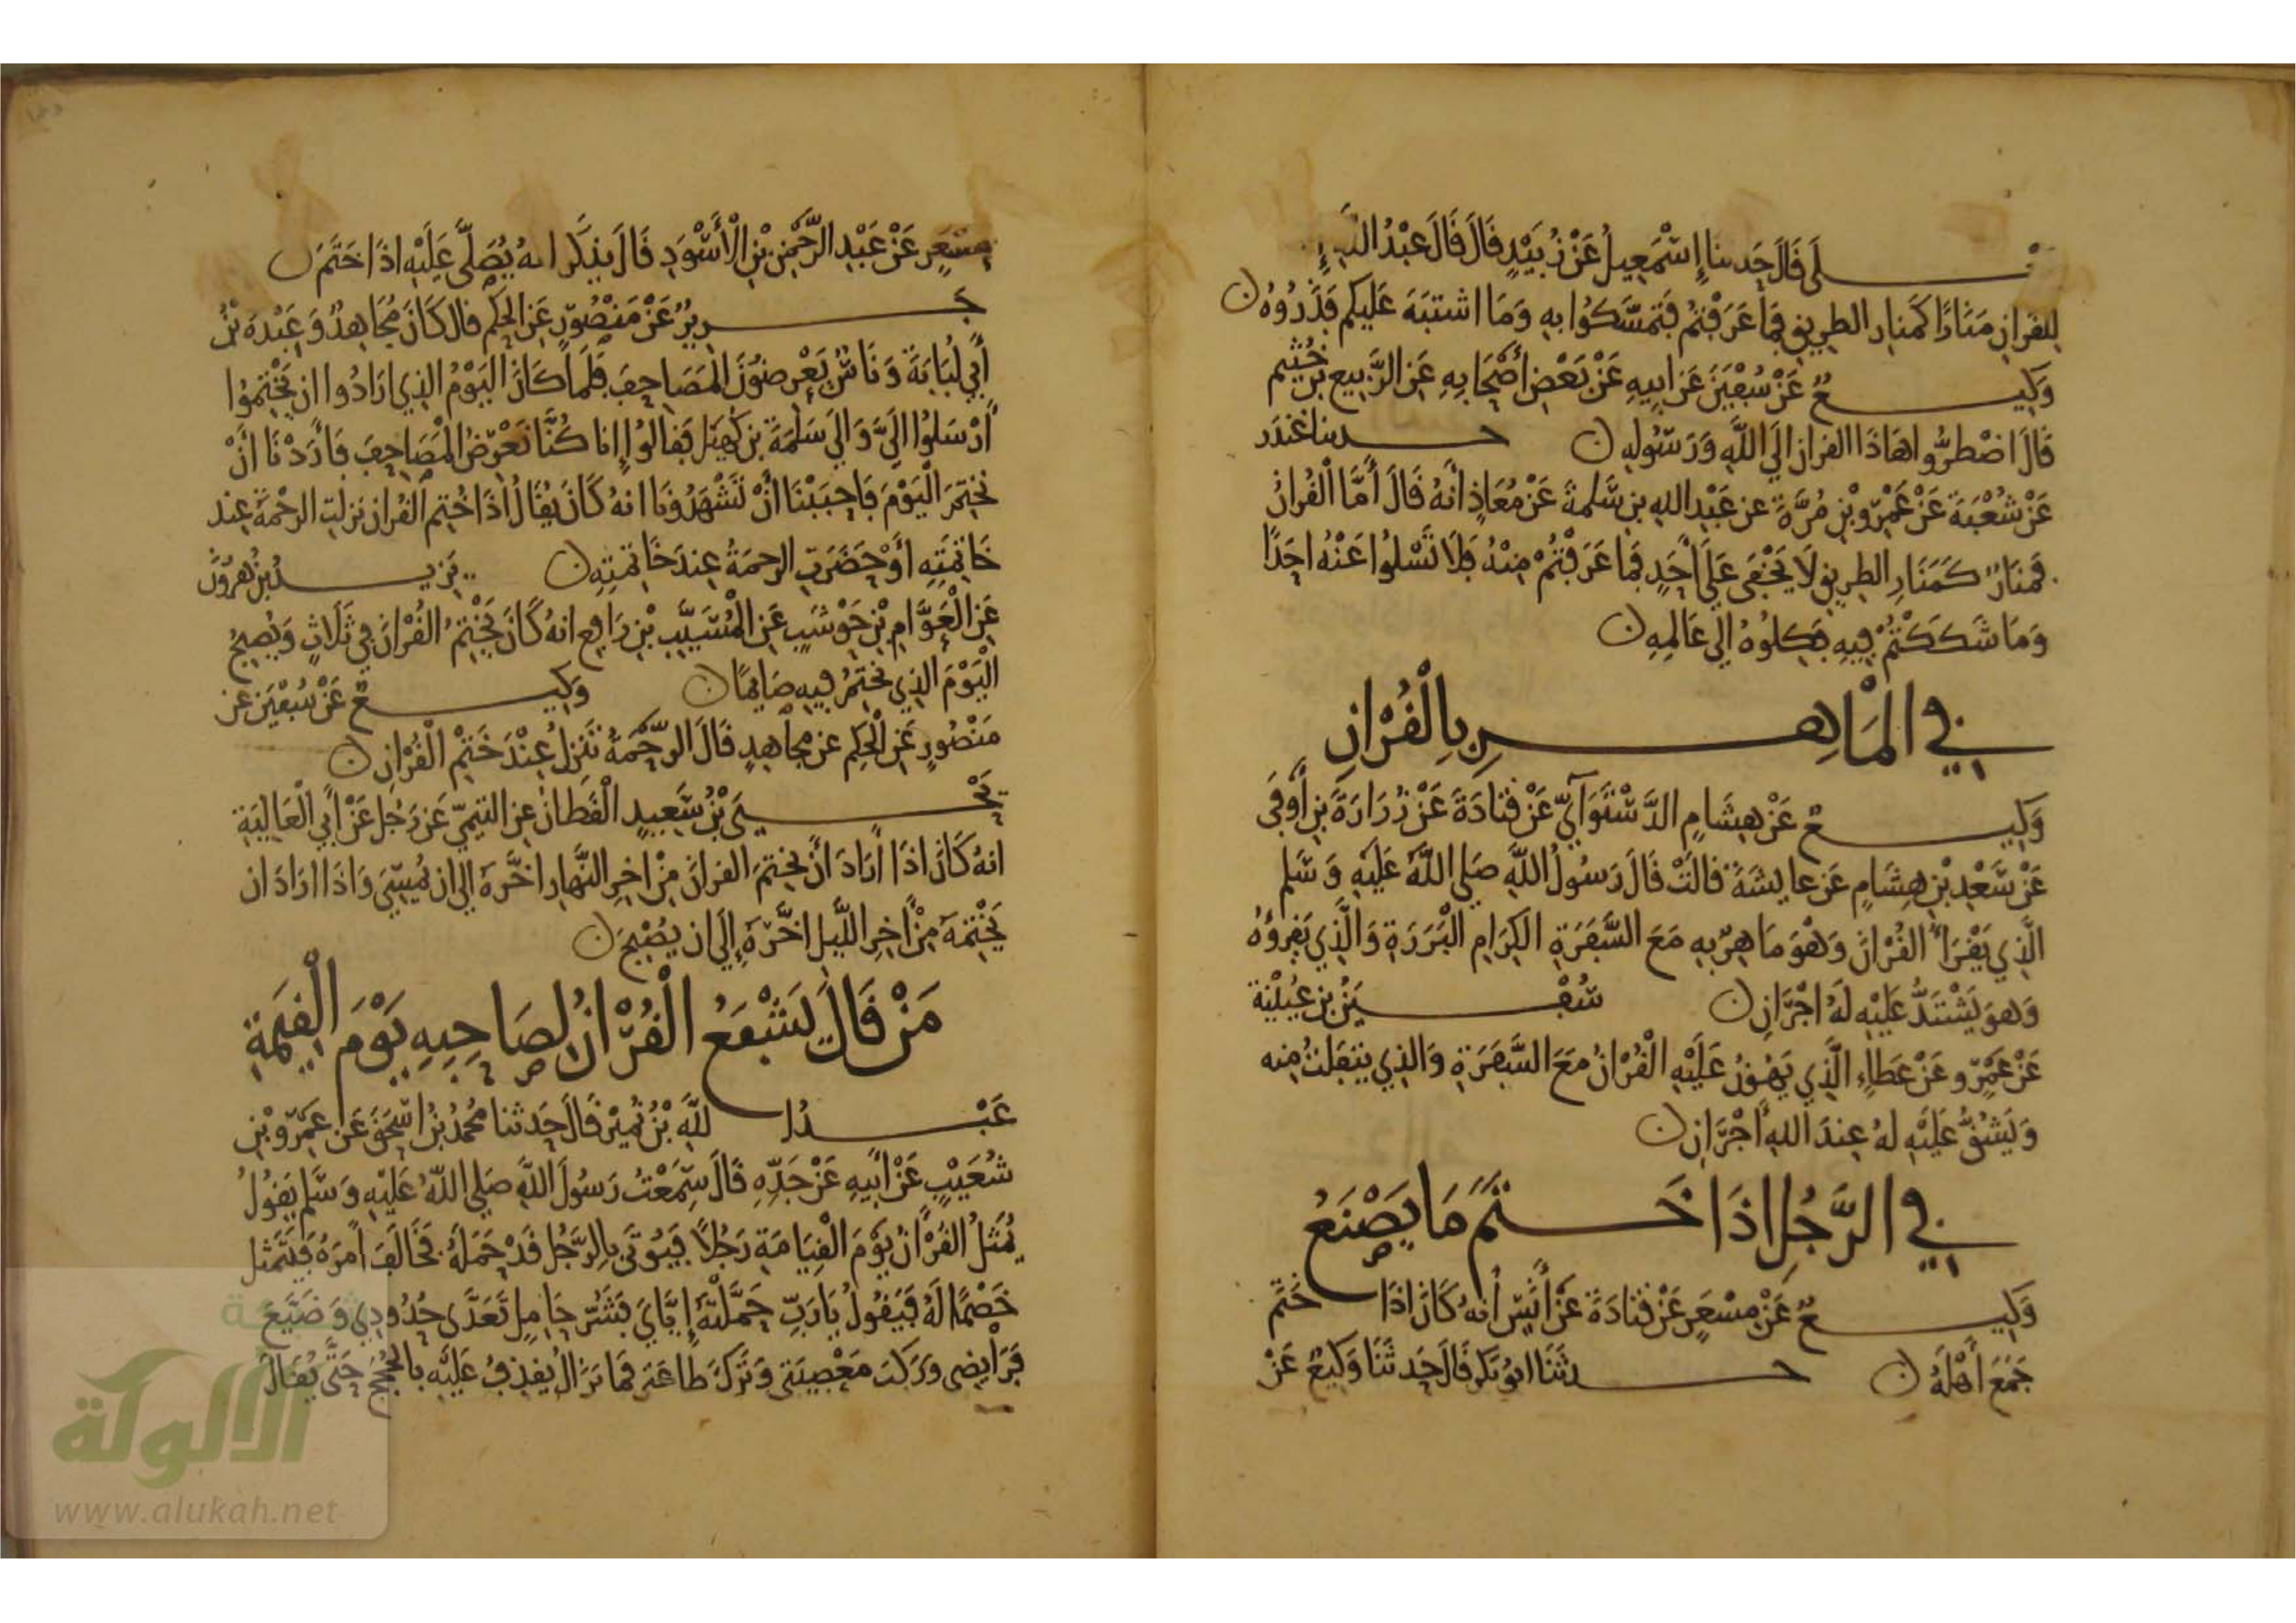 يعلى قال حدثنا إسمعيل عن زبيد قال قال عبد الله إن
للقران منارا كمنار الطريق فما عرفتم فتمسكوا به وما اشتبه عليكم فذروه
وكيع عن سفين عن ابيه عن بعض أصحابه عن الربيع بن خثيم
قال اضطروا هاذا القران الي الله ورسوله حدثنا غندر
عن شعبة عن عمرو بن مرة عن عبد الله بن سلمة عن معاذ انه قال أما القران
فمنار كمنار الطريق لا يخفى علي أحد فما عرفتم منه فلا تسلوا عنه احدا
وما شككتم فيه فكلوه الي عالمه
في الماهر بالقران
وكيع عن هشام الدستوآي عن قتادة عن زرارة بن أوفى
عن سعد بن هشام عن عايشة قالت قال رسول الله صلى الله عليه وسلم
الذي يقرأ القران وهو ماهر به مع السفرة الكرام البررة والذي يقروه
وهو يشتد عليه له اجران سفين بن عيينة
عن عمرو عن عطاء الذي يهون عليه القران مع السفرة والذي يتفلت منه
ويشق عليه له عند الله اجران
في الرجل اذا ختم ما يصنع
وكيع عن مسعر عن قتادة عن أنس أنه كان اذا ختم
جمع أهله حدثنا ابو بكر قال حدثنا وكيع عن
مسعر عن عبد الرحمن بن الأسود قال يذكر انه يصلى عليه اذا ختم
جرير عن منصور عن الحكم قال كان مجاهد وعبدة بن
أبي لبابة وناس يعرضون المصاحف فلما كان اليوم الذي ارادوا ان يختموا
أرسلوا الي والي سلمة بن كهيل فقالوا إنا كنا نعرض المصاحف فأردنا أن
نختم اليوم فاحببنا أن تشهدونا انه كان يقال اذا ختم القران نزلت الرحمة عند
خاتمته أو حضرت الرحمة عند خاتمته يزيد بن هرون
عن العوام بن حوشب عن المسيب بن رافع انه كان يختم القران في ثلاث ويصبح
اليوم الذي يختم فيه صايما وكيع عن سفين عن
منصور عن الحكم عن مجاهد قال الرحمة تنزل عند ختم القران
يحيى بن سعيد القطان عن التيمي عن رجل عن أبي العالية
انه كان اذا أراد أن يختم القران من اخر النهار اخره الي ان يمسي واذا اراد ان
يختمه من أخر الليل اخره إلي ان يصبح
من قال يشفع القران لصاحبه يوم القيمة
عبد الله بن نمير قال حدثنا محمد بن اسحق عن عمرو بن
شعيب عن أبيه عن جده قال سمعت رسول الله صلى الله عليه وسلم يقول
يمثل القران يوم القيامة رجلا فيوتى بالرجل قد حمله فخالف أمره فيتمثل
خصما له فيقول يا رب حملته إياي فشر حامل تعدى حدودي وضيع
فرايضي وركب معصيتي وترك طاعتي فما يزال يقذف عليه بالحجج حتى يقال
شبكة
الألوكة
www.alukah.net